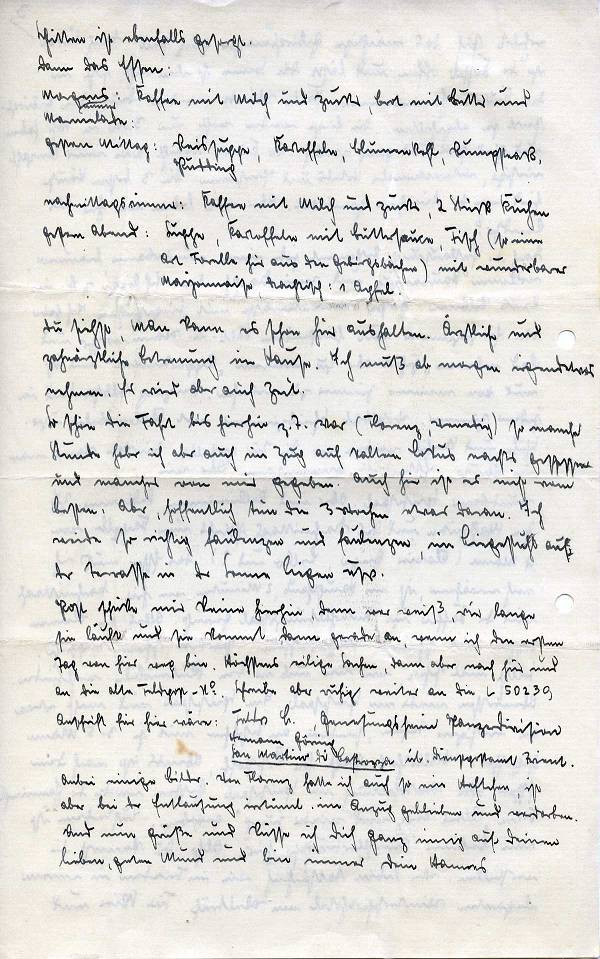 schitten ist ebenfalls gesorgt.
Dann das Essen:
Morgens: Kaffee mit Milch und Zucker, Brot mit Butter und
immer
Marmelade:
gestern Mittag: Reissuppe, Kartoffeln, Blumenkohl, Rumpsteak,
Pudding
nachmittags immer: Kaffee mit Milch und Zucker, 2 Stück Kuchen
gestern Abend: Suppe, Kartoffeln mit Buttersauce, Fisch (so eine
Art Forelle hier aus den Gebirgsbächen) mit wunderbarer
Mayonnaise, Nachtisch: 1 Apfel.
Du siehst, man kann es schon hier aushalten. Ärztliche und
zahnärztliche Betreuung im Hause. Ich muß ab morgen irgendetwas
nehmen. Es wird aber auch Zeit.
So schön die Fahrt bis hierhin z.T. war (Florenz, Venedig) so manche
Stunde habe ich aber auch im Zug auf kalten nachts gesessen
und manches von mir gegeben. Auch hier ist es nicht vom
besten. Aber, hoffentlich tun die 3 Wochen etwas daran. Ich
werde so richtig faulenzen und faulenzen, im Liegestuhl auf
der Terrasse in der Sonne liegen usw.
Post schicke mir keine hierhin, denn wer weiß, wie lange
sie läuft und sie kommt dann gerade an, wenn ich den ersten
Tag von hier weg bin. Höchstens eilige Sachen, dann aber nach hier und
an die alte Feldpost-Nr. Schreibe aber ruhig weiter an die L 50239
Anschrift für hier wäre: Gefr. H. Genesungsheim Panzerdivision
Hermann Göring
San Martino di Castrozza üb. Dienstpostamt Trient.
Anbei einige Bilder. Von Florenz hatte ich auch so ein Heftchen, ist
aber bei der Entlausung irrtüml. im Anzug geblieben und verdorben.
Und nun grüße und küsse ich Dich ganz innig auf Deinen
lieben, guten Mund und bin immer Dein Hannes